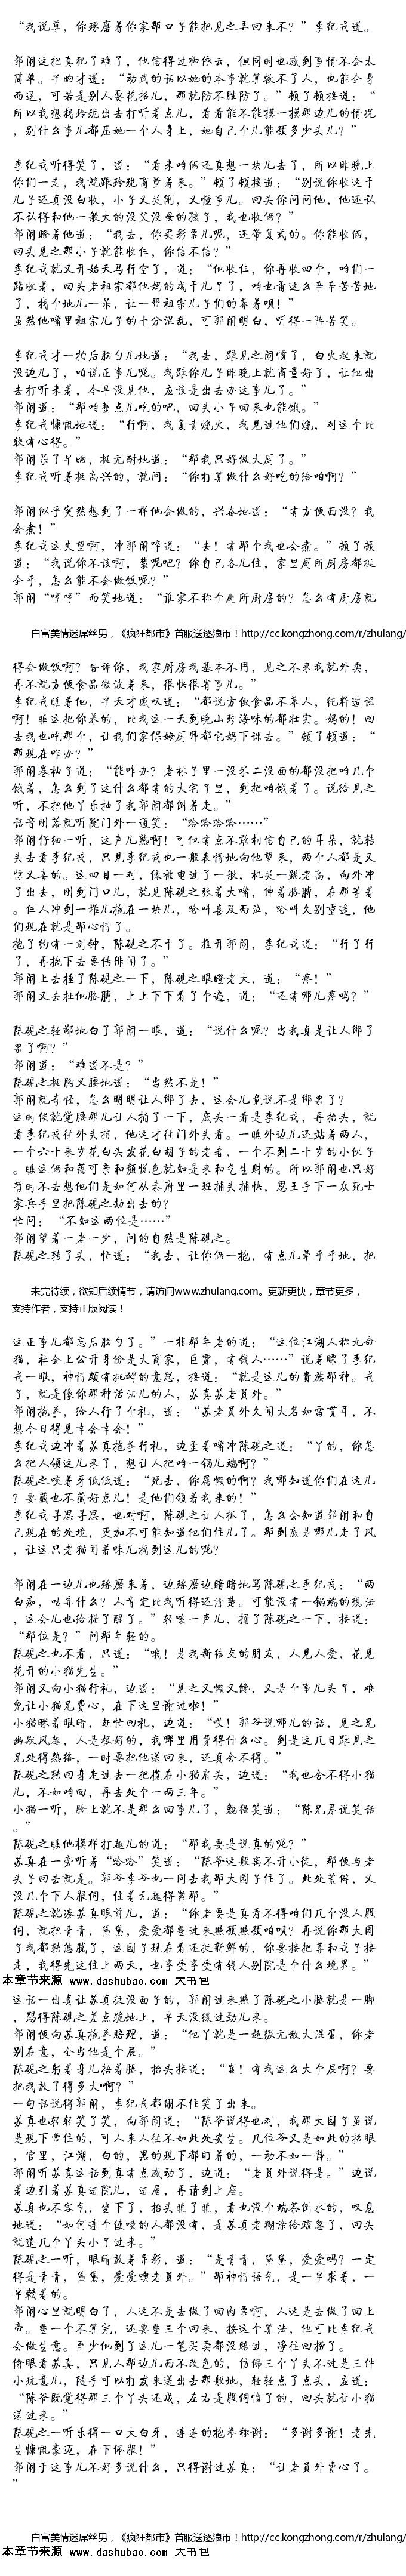 “我说尊，你琢磨着你家那口子能把见之弄回来不？”李纪我道。
郭阁这把真犯了难了，他信得过柳依云，但同时也感到事情不会太
简单。半晌才道：“动武的话以她的本事就算救不了人，也能全身
而退，可若是别人耍花招儿，那就防不胜防了。”顿了顿接道：“
所以我想找玲珑出去打听着点儿，看看能不能摸一摸那边儿的情况
，别什么事儿都压她一个人身上，她自己个儿能顾多少头儿？”
李纪我听得笑了，道：“看来咱俩还真想一块儿去了，所以昨晚上
你们一走，我就跟玲珑商量着来。”顿了顿接道：“别说你收这干
儿子还真没白收，小子又灵俐，又懂事儿。回头你问问他，他还认
不认得和他一般大的没父没母的孩子，我也收俩？”
郭阁瞪着他道：“我去，你买彩票儿呢，还带复式的。你能收俩，
回头见之那小子就能收仨，你信不信？”
李纪我就又开始天马行空了，道：“他收仨，你再收四个，咱们一
路收着，回头老祖宗都他妈的成干儿子了，咱也甭这么辛辛苦苦地
了，找个地儿一呆，让一帮祖宗子儿们的养着呗！”
虽然他嘴里祖宗儿子的十分混乱，可郭阁明白，听得一阵苦笑。
李纪我才一拍后脑勺儿地道：“我去，跟见之闹惯了，白火起来就
没边儿了，咱说正事儿呢。我跟你儿子昨晚上就商量好了，让他出
去打听来着，今早没见他，应该是出去办这事儿了。”
郭阁道：“那咱整点儿吃的吧，回头小子回来也能饿。”
李纪我慷慨地道：“行啊，我负责烧火，我见过他们烧，对这个比
较有心得。”
郭阁呆了半晌，挺无耐地道：“那我只好做大厨了。”
李纪我听着挺高兴的，就问：“你打算做什么好吃的给咱啊？”
郭阁似乎突然想到了一样他会做的，兴奋地道：“有方便面没？我
会煮！”
李纪我这失望啊，冲郭阁啐道：“去！有那个我也会煮。”顿了顿
道：“我说你不该啊，装呢吧？你自己各儿住，家里厕所厨房都挺
全乎，怎么能不会做饭呢？”
郭阁“哼哼”而笑地道：“谁家不称个厕所厨房的？怎么有厨房就
白富美情迷屌丝男，《疯狂都市》首服送逐浪币！http://cc.kongzhong.com/r/zhulang/
得会做饭啊？告诉你，我家厨房我基本不用，见之不来我就外卖，
再不就方便食品微波着来，很快很省事儿。”
李纪我瞧着他，半天才感叹道：“都说方便食品不养人，纯粹造谣
啊！瞧这把你养的，比我这一天到晚山珍海味的都壮实。妈的！回
去我也吃那个，让我们家保姆厨师都它妈下课去。”顿了顿道：“
那现在咋办？”
郭阁卷袖子道：“能咋办？老林子里一没米二没面的都没把咱几个
饿着，怎么到了这什么都有的大宅子里，到把咱饿着了。说给见之
听，不把他丫乐抽了我郭阁都倒着走。”
话音刚落就听院门外一通笑：“哈哈哈哈……”
郭阁仔细一听，这声儿熟啊！可他有点不敢相信自己的耳朵，就转
头去看李纪我，只见李纪我也一般表情地向他望来，两个人都是又
惊又喜的。这四目一对，像被电过了一般，机灵一跳老高，向外冲
了出去，刚到门口儿，就见陈砚之张着大嘴，伸着胳膊，在那等着
。仨人冲到一堆儿抱在一块儿，啥叫喜及而泣，啥叫久别重逢，他
们现在就是那心情了。
抱了约有一刻钟，陈砚之不干了。推开郭阁，李纪我道：“行了行
了，再抱下去要传绯闻了。”
郭阁上去捶了陈砚之一下，陈砚之眼瞪老大，道：“疼！”
郭阁又去扯他胳膊，上上下下看了个遍，道：“还有哪儿疼吗？”
陈砚之轻鄙地白了郭阁一眼，道：“说什么呢？当我真是让人绑了
票了啊？”
郭阁道：“难道不是？”
陈砚之挺胸叉腰地道：“当然不是！”
郭阁就奇怪，怎么明明让人绑了去，这会儿竟说不是绑票了？
这时候就觉腰那儿让人捅了一下，底头一看是李纪我，再抬头，就
看李纪我往外头指，他这才往门外头看。一瞧外边儿还站着两人，
一个六十来岁花白头发花白胡子的老者，一个不到二十岁的小伙子
。瞧这俩和蔼可亲和颜悦色就知是来和气生财的。所以郭阁也只好
暂时不去想他们是如何从秦府里一班捕头捕快，恩王手下一众死士
家兵手里把陈砚之劫出去的？
忙问：“不知这两位是……”
郭阁望着一老一少，问的自然是陈砚之。
陈砚之转了头，忙道：“我去，让你俩一抱，有点儿晕乎乎地，把
未完待续，欲知后续情节，请访问www.zhulang.com。更新更快，章节更多，
支持作者，支持正版阅读！
这正事儿都忘后脑勺了。”一指那年老的道：“这位江湖人称九命
猫，社会上公开身份是大商家，巨贾，有钱人……”说着瞭了李纪
我一眼，神情颇有挑衅的意思，接道：“就是这儿的贵族那种。我
子，就是像你那种活法儿的人，苏真苏老员外。”
郭阁抱拳，给人行了个礼，道：“苏老员外久闻大名如雷贯耳，不
想今日得见幸会幸会！”
李纪我边冲着苏真抱拳行礼，边歪着嘴冲陈砚之道：“丫的，你怎
么把人领这儿来了，想让人把咱一锅儿端啊？”
陈砚之咬着牙低低道：“死去，你属懒的啊？我哪知道你们在这儿
？要藏也不藏好点儿！是他们领着我来的！”
李纪我寻思寻思，也对啊，陈砚之让人抓了，怎么会知道郭阁和自
己现在的处境，更加不可能知道他们住儿了。那到底是哪儿走了风
，让这只老猫闻着味儿找到这儿的呢？
郭阁在一边儿也琢磨来着，边琢磨边暗暗地骂陈砚之李纪我：“两
白痴，咕弄什么？人肯定比我听得还清楚。可能没有一锅端的想法
，这会儿也给提了醒了。”轻咳一声儿，捅了陈砚之一下，接道：
“那位是？”问那年轻的。
陈砚之也不看，只道：“哦！是我新结交的朋友，人见人爱，花见
花开的小猫先生。”
郭阁又向小猫行礼，边道：“见之又懒又馋，又是个事儿头子，难
免让小猫兄费心，在下这里谢过啦！”
小猫眯着眼睛，赶忙回礼，边道：“哎！郭爷说哪儿的话，见之兄
幽默风趣，人是极好的，我哪里用费得什么心。到是这几日跟见之
兄处得熟络，一时要把他送回来，还真舍不得。”
陈砚之转回身走过去一把搅在小猫肩头，边道：“我也舍不得小猫
儿，不如咱回，再去处个一两三年。”
小猫一听，脸上就不是那么回事儿了，勉强笑道：“陈兄尽说笑话
。”
陈砚之瞧他模样打趣儿的道：“那我要是说真的呢？”
苏真在一旁听着“哈哈”笑道：“陈爷这般离不开小徒，那便与老
头子回去就是。郭爷李爷也一同去我那大园子住了。此处荒僻，又
没几个下人服伺，住着无趣得紧那。”
陈砚之就凑苏真眼前儿，道：“你老要是真看不得咱们几个没人服
伺，就把青青，黛黛，爱爱都整过来照顾照顾咱呗？再说你那大园
子我都转悠腻了，这园子现在看还挺新鲜的，你要接把尊和我子接
走，我得先这住上两天，也享受享受有钱人别院是个什么境界。”
本章节来源 www.dashubao.com 大书包
这话一出真让苏真挺没面子的，郭阁过来照了陈砚之小腿就是一脚
，踢得陈砚之差点跪地上，半天没缓过劲儿来。
郭阁便向苏真抱拳赔理，道：“他丫就是一超级无敌大混蛋，你老
别在意，全当他是个屁。”
陈砚之躬着身儿抬着腿，抬头接道：“靠！有我这么大个屁啊？要
把我放了得多大啊？”
一句话说得郭阁，李纪我都绷不住笑了出来。
苏真也轻轻笑了笑，向郭阁道：“陈爷说得也对，我那大园子虽说
是现下常住的，可人来人往不如此处安生。几位爷又是如此的招眼
，官里，江湖，白的，黑的现下都盯着的，一动不如一静。”
郭阁听苏真这话到真有点感动了，边道：“老員外说得是。”边说
着边引着苏真进院儿，进屋，再请到上座。
苏真也不客气，坐下了，抬头瞧了瞧，看也没个端茶倒水的，叹息
地道：“如何连个使唤的人都没有，是苏真老糊涂给疏忽了，回头
就遣几个丫头小子过来。”
陈砚之一听，眼睛放着异彩，道：“是青青，黛黛，爱爱吗？一定
得是青青，黛黛，爱爱噢老員外。”那神情语气，是一半求着，一
半赖着的。
郭阁心里就明白了，人这不是去做了回肉票啊，人这是去做了回上
帝。整一个不算完，还要整三个回来，按这个算法，他可比李纪我
会做生意。至少他到了这儿一笔买卖都没赔过，净往回捞了。
偷眼看苏真，只见人那边儿面不改色的，仿佛三个丫头不过是三件
小玩意儿，随手可以打发来送出去那般地，轻轻点了点头，应道：
“陈爷既觉得那三个丫头还成，左右是服伺惯了的，回头就让小猫
送过来。”
陈砚之一听乐得一口大白牙，连连的抱拳称谢：“多谢多谢！老先
生慷慨豪迈，在下佩服！”
郭阁于这事儿不好多说什么，只得谢过苏真：“让老員外费心了。
”
白富美情迷屌丝男，《疯狂都市》首服送逐浪币！http://cc.kongzhong.com/r/zhulang/
本章节来源 www.dashubao.com 大书包